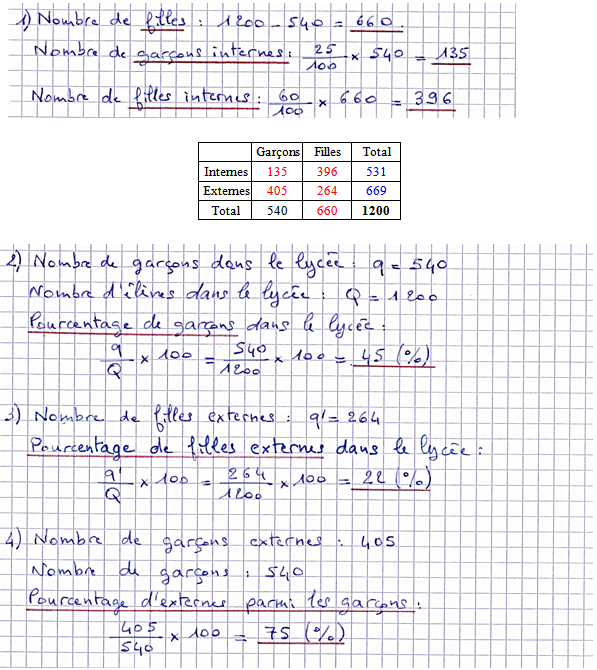 1) Nombre de filles : 1200 - 540 = 660.
Nombre de garçons internes : 25/100 × 540 = 135
Nombre de filles internes : 60/100 × 660 = 396
Garçons Filles Total
Internes 135 396 531
Externes 405 264 669
Total 540 660 1200
2) Nombre de garçons dans le lycée : q = 540
Nombre d'élèves dans le lycée : Q = 1200
Pourcentage de garçons dans le lycée :
q/Q × 100 = 540/1200 × 100 = 45 (%)
3) Nombre de filles externes : q' = 264
Pourcentage de filles externes dans le lycée :
q'/Q × 100 = 264/1200 × 100 = 22 (%)
4) Nombre de garçons externes : 405
Nombre de garçons : 540
Pourcentage d'externes parmi les garçons :
405/540 × 100 = 75 (%)